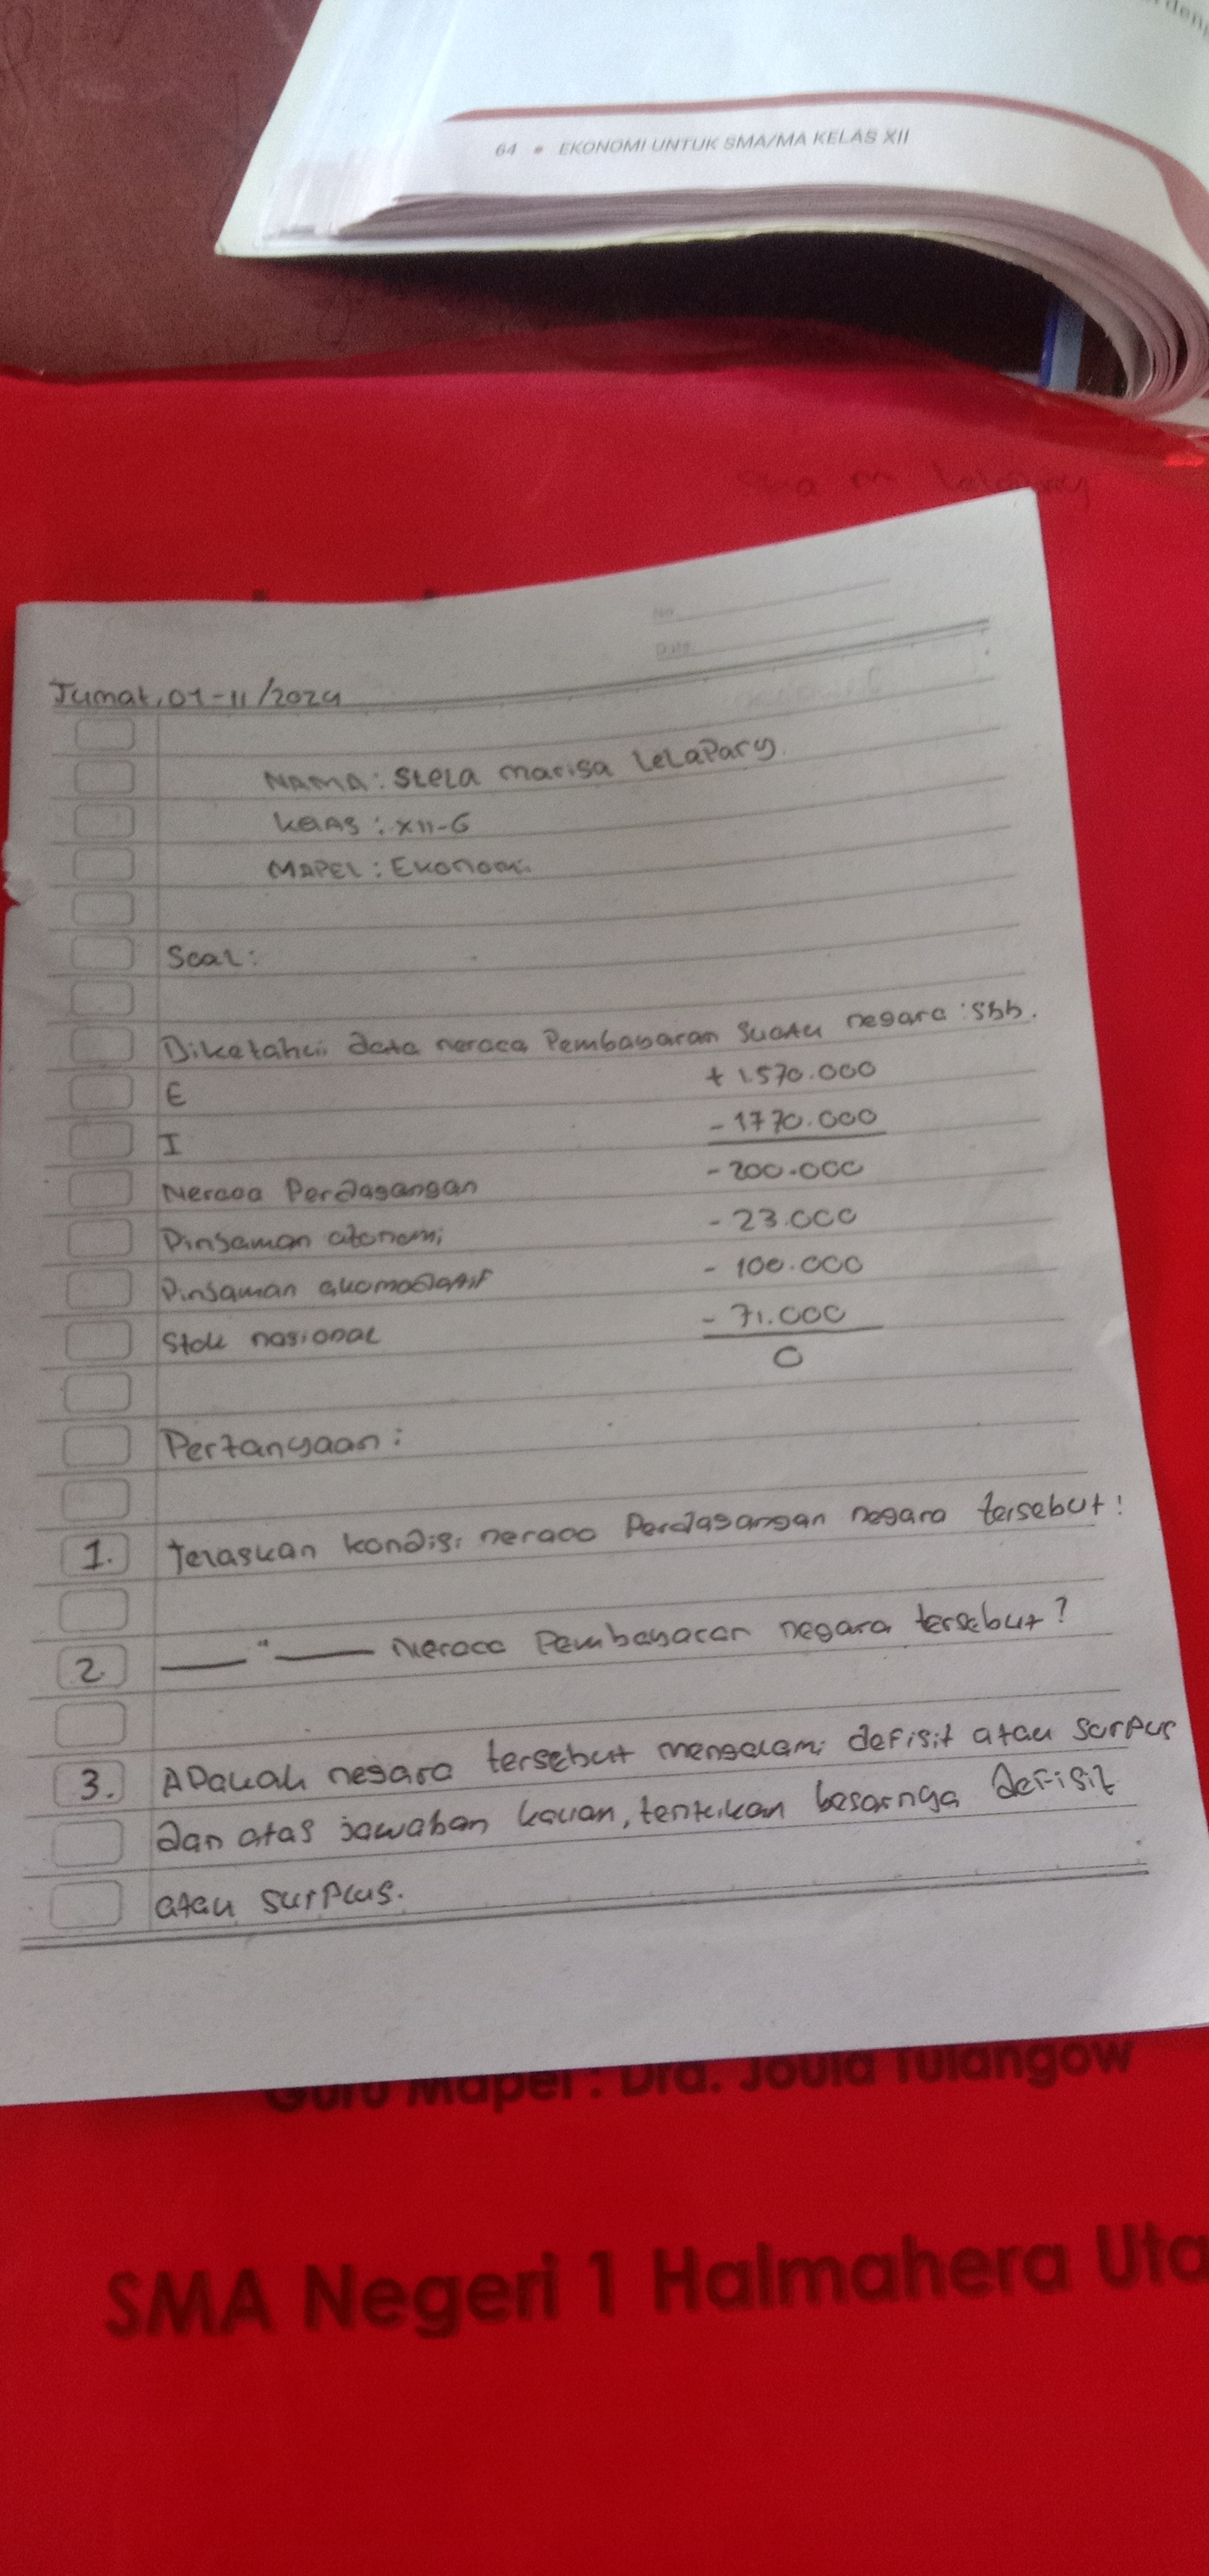 64 • EKONOMI UNTUK SMA/MA KELAS XII
No
Date
Jumat, 01-11/2024
NAMA: Stela marisa LeLaPary.
KelAS : XII-6
MAPEL : Ekonomi
Soal:
Diketahui data neraca Pembayaran Suatu negara : sbb.
E + 1.570.000
I - 1770.000
Neraca Perdagangan - 200.000
Pinjaman otonomi - 23.000
Pinjaman akomodatif - 100.000
Stok nasional - 71.000
0
Pertanyaan :
1. Jelaskan kondisi neraca Perdagangan negara tersebut!
2. —— " —— Neraca Pembayaran negara tersebut?
3. APakah negara tersebut mengalami defisit atau surPus
dan atas jawaban kalian, tentukan besarnya defisit
atau surPlus.
Guru Mapel : Dra. Joula Tulangow
SMA Negeri 1 Halmahera Uta